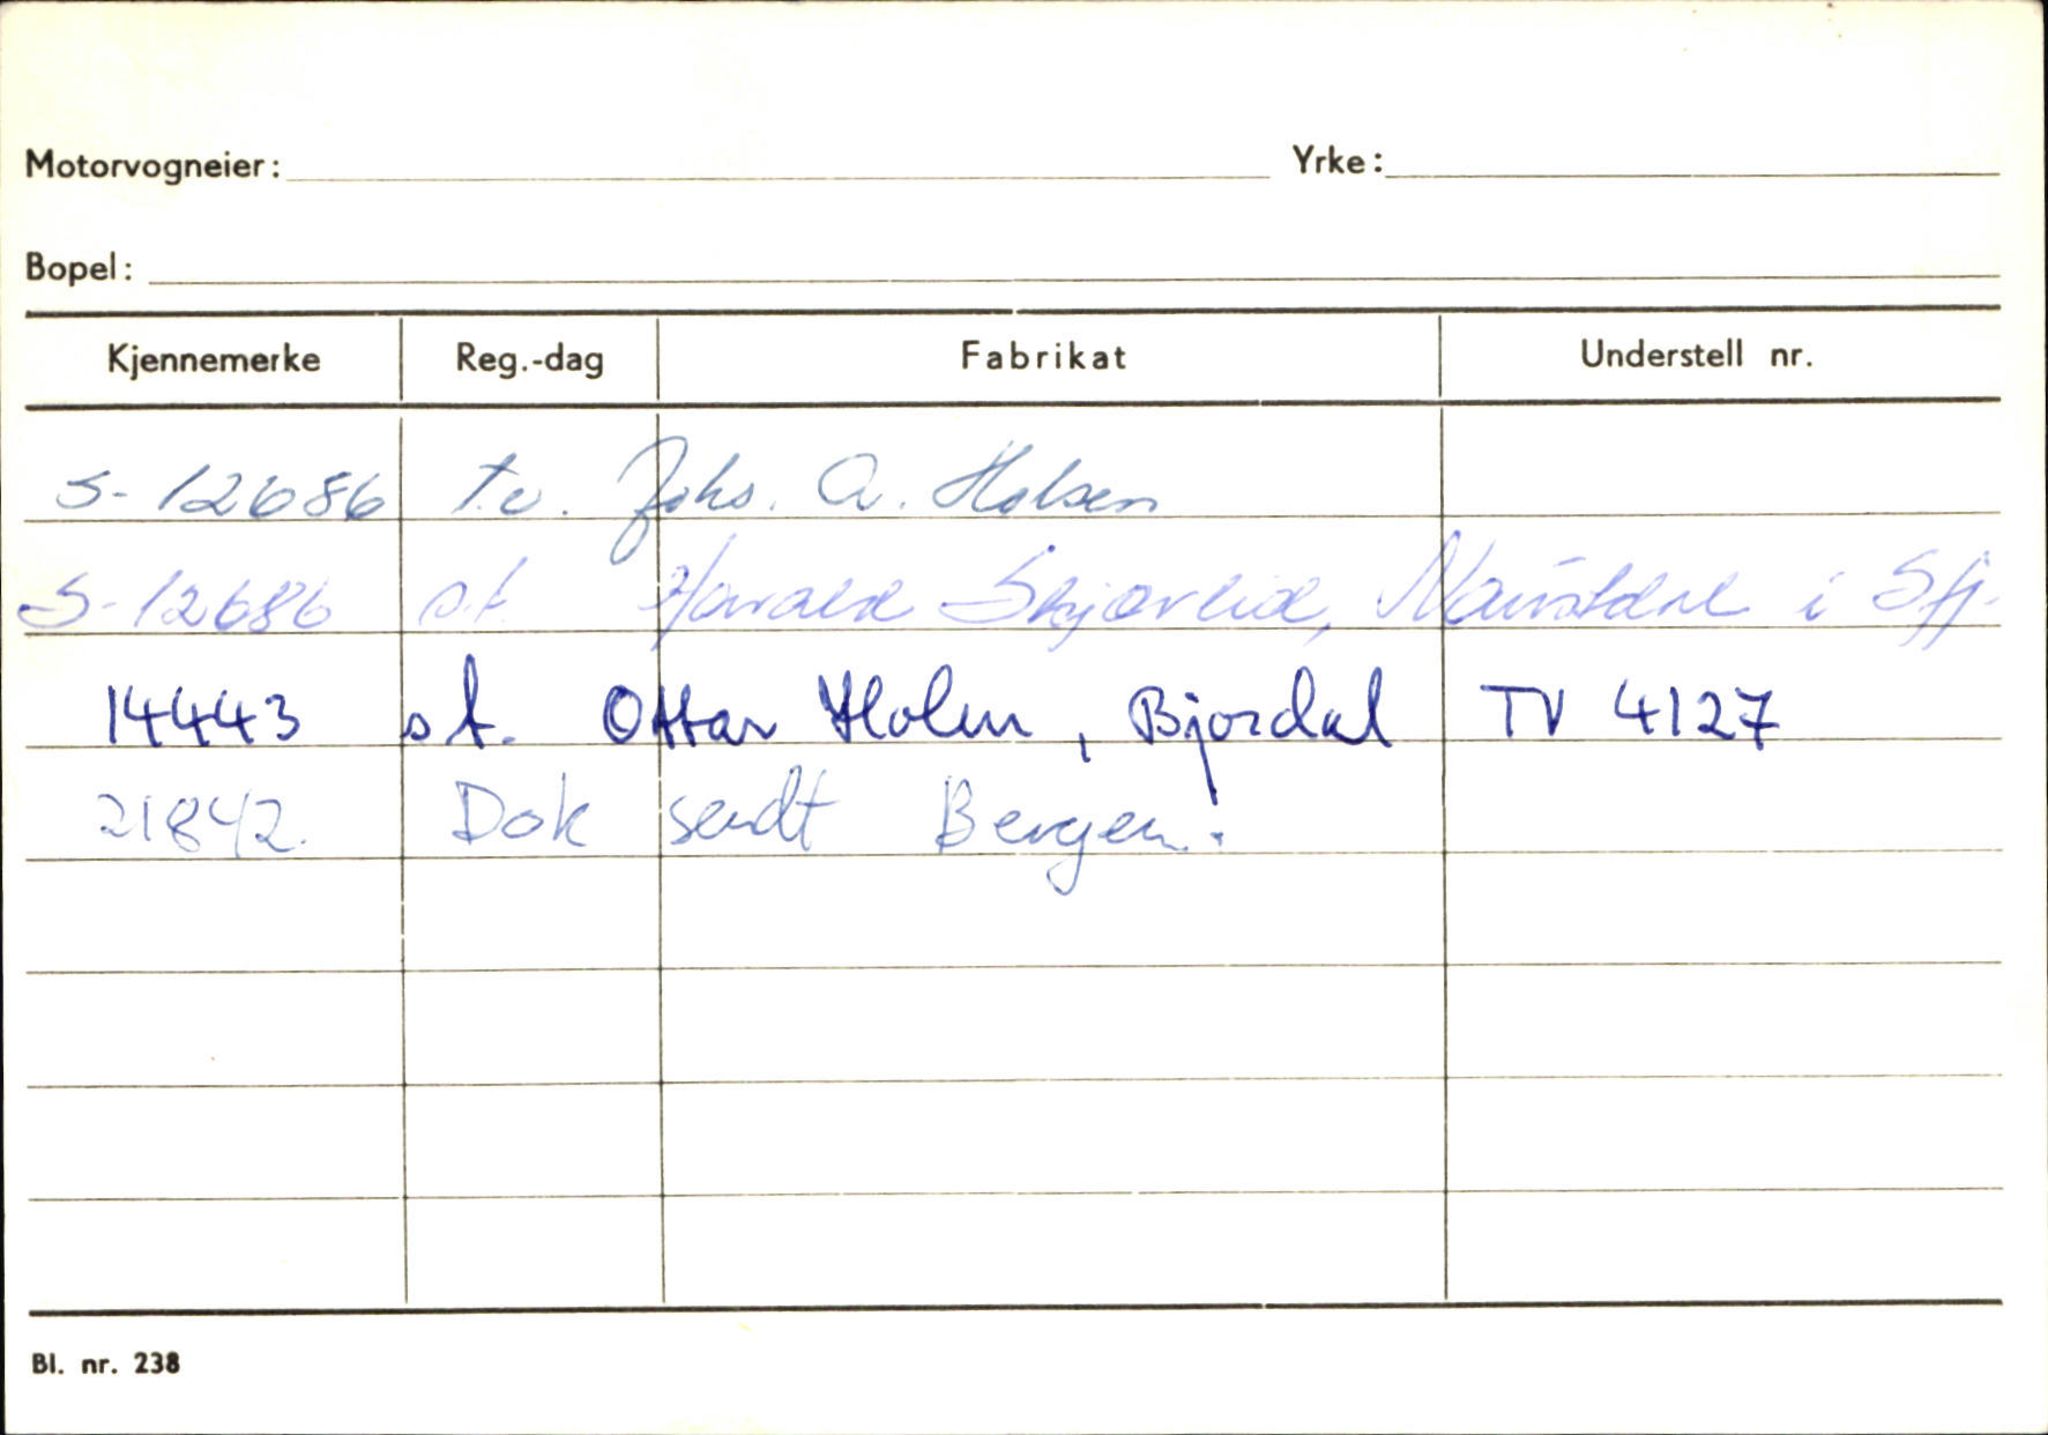 Motorvogneier: Yrke:
Bopel:
Kjennemerke Reg.-dag Fabrikat Understell nr.
S-12686 t.v. Johs. A. Holsen
S-12686 s.t. Harald Skjærlid, Naustdal i Sfj.
14443 s.t. Ottar Holm, Bjordal TV 4127
21842. Dok sendt Bergen.
Bl. nr. 238